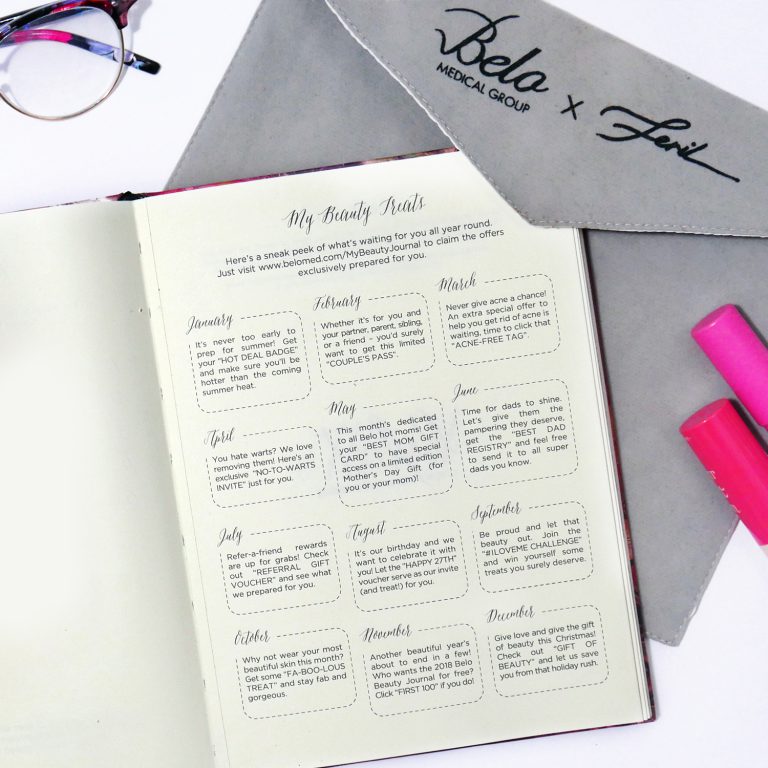 Belo
MEDICAL GROUP
x
My Beauty Treats
Here's a sneak peek of what's waiting for you all year round.
Just visit www.belomed.com/MyBeautyJournal to claim the offers
exclusively prepared for you.
January
It's never too early to
prep for summer! Get
your "HOT DEAL BADGE"
and make sure you'll be
hotter than the coming
summer heat.
February
Whether it's for you and
your partner, parent, sibling,
or a friend – you'd surely
want to get this limited
"COUPLE'S PASS".
March
Never give acne a chance!
An extra special offer to
help you get rid of acne is
waiting, time to click that
"ACNE-FREE TAG".
April
You hate warts? We love
removing them! Here's an
exclusive "NO-TO-WARTS
INVITE" just for you.
May
This month's dedicated
to all Belo hot moms! Get
your "BEST MOM GIFT
CARD" to have special
access on a limited edition
Mother's Day Gift (for
you or your mom)!
June
Time for dads to shine.
Let's give them the
pampering they deserve,
get the "BEST DAD
REGISTRY" and feel free
to send it to all super
dads you know.
July
Refer-a-friend rewards
are up for grabs! Check
out "REFERRAL GIFT
VOUCHER" and see what
we prepared for you.
August
It's our birthday and we
want to celebrate it with
you! Let the "HAPPY 27TH"
voucher serve as our invite
(and treat!) for you.
September
Be proud and let that
beauty out. Join the
"#ILOVEME CHALLENGE"
and win yourself some
treats you surely deserve.
October
Why not wear your most
beautiful skin this month?
Get some "FA-BOO-LOUS
TREAT" and stay fab and
gorgeous.
November
Another beautiful year's
about to end in a few!
Who wants the 2018 Belo
Beauty Journal for free?
Click "FIRST 100" if you do!
December
Give love and give the gift
of beauty this Christmas!
Check out "GIFT OF
BEAUTY" and let us save
you from that holiday rush.